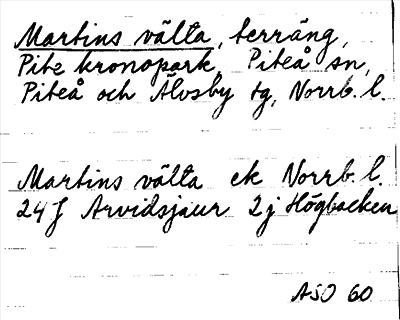 Martins välta, terräng,
Pite kronopark, Piteå sn,
Piteå och Älvsby tg, Norrb. l.
Martins välta ek Norrb. l.
24 J Arvidsjaur 2 j Högbacken
ASO 60